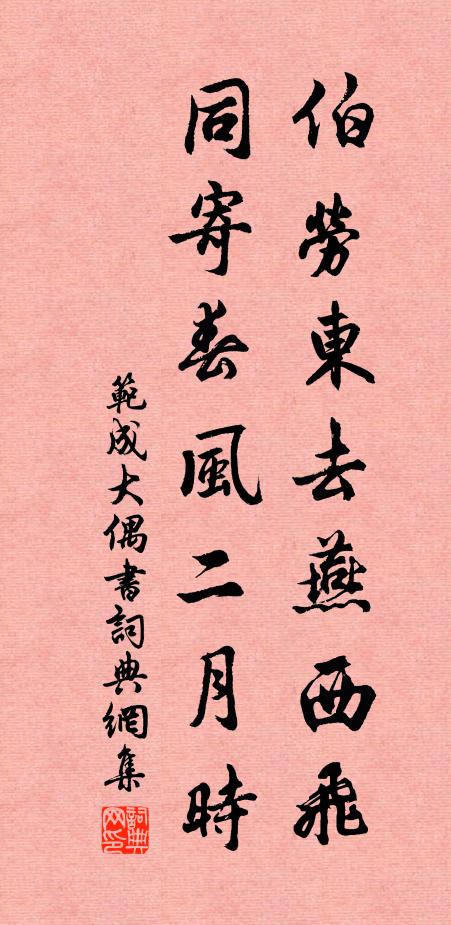 伯勞東去燕西飛
同寄春風二月時
範成大偶書詞典網集
詞典网印